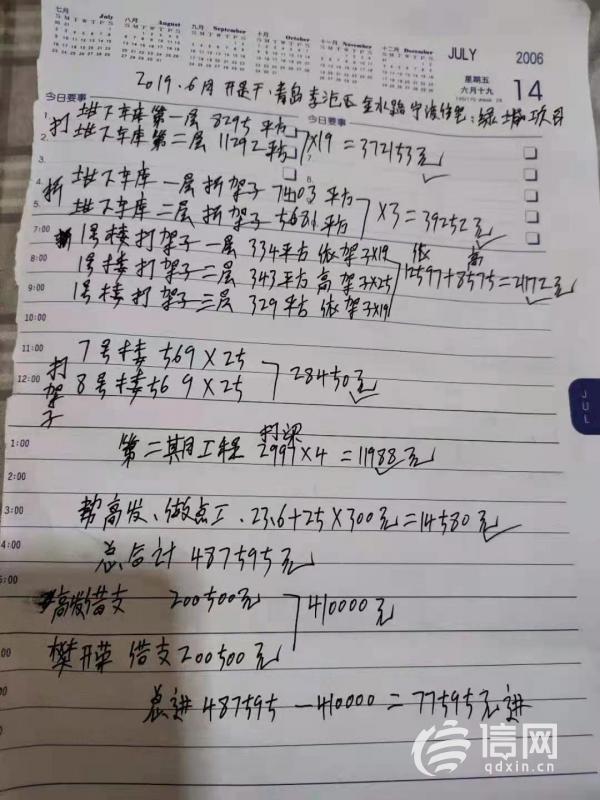 七月 July
八月 August
九月 September
十月 October
十一月 November
十二月 December
JULY 2006
星期五
六月十九 14
2019.6月开是干:青岛李沧区金水路宁波住宅:绿城项目
今日要事 今日要事
打 地下车库第一层 8295平方
地下车库第二层 11292平方 ×19=372153元
拆 地下车库一层拆架子7403平方
地下车库二层拆架子5681平方 ×3=39252元
7:00 1号楼打架子一层334平方依架子×19 依 高
8:00 1号楼打架子二层343平方高架子×25 12597+8575=21172元
9:00 1号楼打架子三层329平方依架子×19
10:00
11:00 7号楼569×25
12:00 打架子 8号楼569×25 28450元
打梁
1:00 第二期工程 2997×4=11988元
2:00
3:00 帮高发、做点工.23.6+25×300元=14580元
4:00 总合计487595元
5:00 高发借支 200500元 410000元
樊开荣 借支200500元
总进487595-410000=77595元进
JUL
信网
qdxin.cn